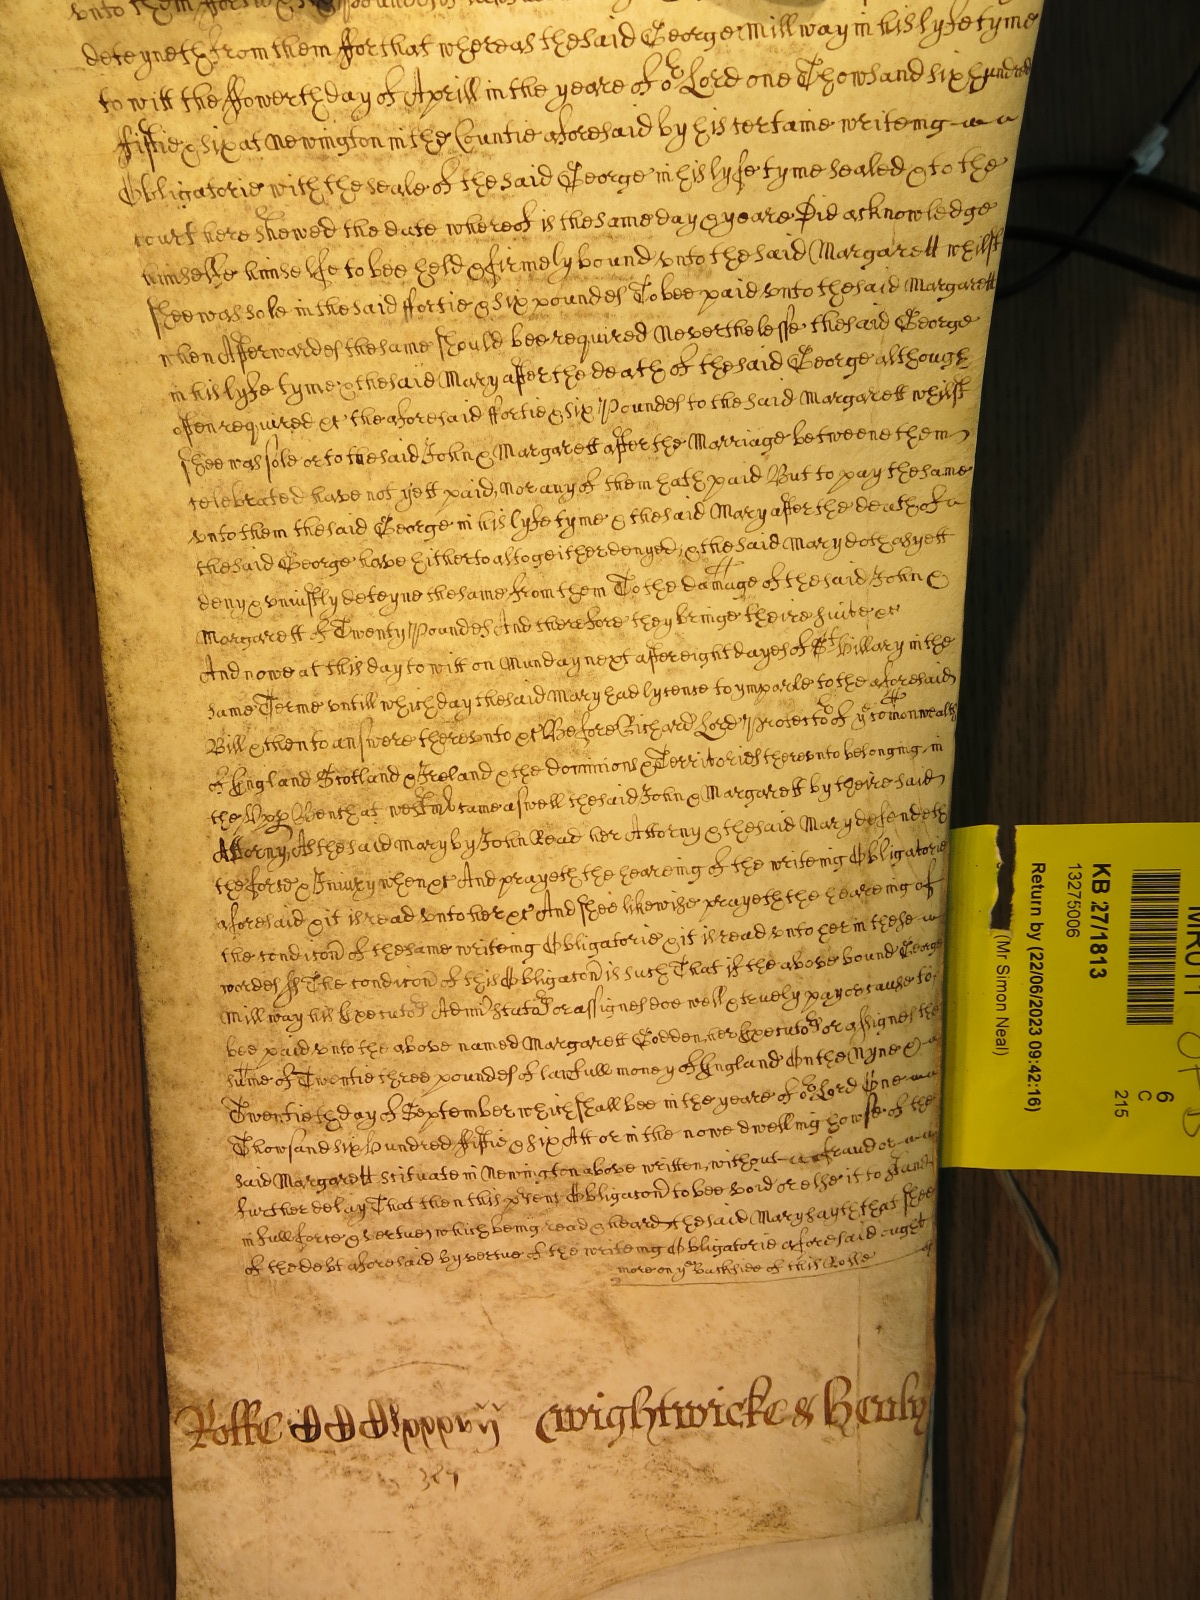 vnto them
deteyneth from them for that whereas the said George Millway in his lyfe tyme
to witt the ffowerth day of Aprill in the yeare of or Lord one Thowsand six hundred
fiftie & six at Newington in the Countie aforesaid by his certaine writeing
Obligatorie with the seale of the said George in his lyfe tyme sealed & to the
court here shewed the date whereof is the same day & yeare Did acknowledge
himselfe himselfe to bee held & firmely bound vnto the said Margarett whilst
shee was sole in the said ffortie & six poundes To bee paid vnto the said Margarett
when Afterwardes the same should bee required Neverthelesse the said George
in his lyfe tyme & the said Mary after the death of the said George although
often required &c the aforesaid ffortie & six Poundes to the said Margarett whilst
shee was sole or to the said John & Margarett after the Marriage betweene them
celebrated have not yett paid, nor any of them hath paid But to pay the same
vnto them the said George in his lyfe tyme & the said Mary after the death of
the said George have hitherto altogeither denyed, & the said Mary doth as yett
deny & vniustly deteyne the same from them To the damage of the said John &
Margarett of Twenty Poundes And therefore they bringe theire suite &c
And nowe at this day to witt on Munday next after eight dayes of St Hillary in the
same Terme vntill which day the said Mary had lycense to ymparle to the aforesaid
Bill & then to answere therevnto &c Before Richard Lord Protector of ye comonwealth
of England Scotland & Ireland & the dominions & Territories therevnto belonging, in
the Vpp Bench at Westmr came aswell the said John & Margarett by theire said
Attorny, As the said Mary by John Read her Attorny & the said Mary defendeth
the force & Iniury when &c And prayeth the heareing of the writeing Obligatorie
aforesaid & it is read vnto her &c And shee likewise prayeth the heareing of
the condicon of the same writeing Obligatorie & it is read vnto her in these
wordes ss The condicon of this Obligacon is such That if the above bound George
Millway his Executors Administrators or assignes doe well & truely pay or cause to
bee paid vnto the above named Margarett Godden, her Executors or assignes the
sume of Twentie three poundes of lawfull money of England On the Nyne &
Twentieth day of September which shall bee in the yeare of or Lord One
Thowsand six hundred fiftie & six Att or in the nowe dwelling howse of the
said Margarett scituate in Newington above written, without fraud or
further delay That then this present Obligacon to bee void or else it to stand
in full force & vertue, which being read & heard the said Mary sayth that shee
of the debt aforesaid by vertue of the writeing Obligatorie aforesaid ought
more on ye Backside of this Rolle
Rolle Wightwicke & Henly
MR011
6
C
215
KB 27/1813
13275006
Return by (22/06/2023 09:42:16)
(Mr Simon Neal)